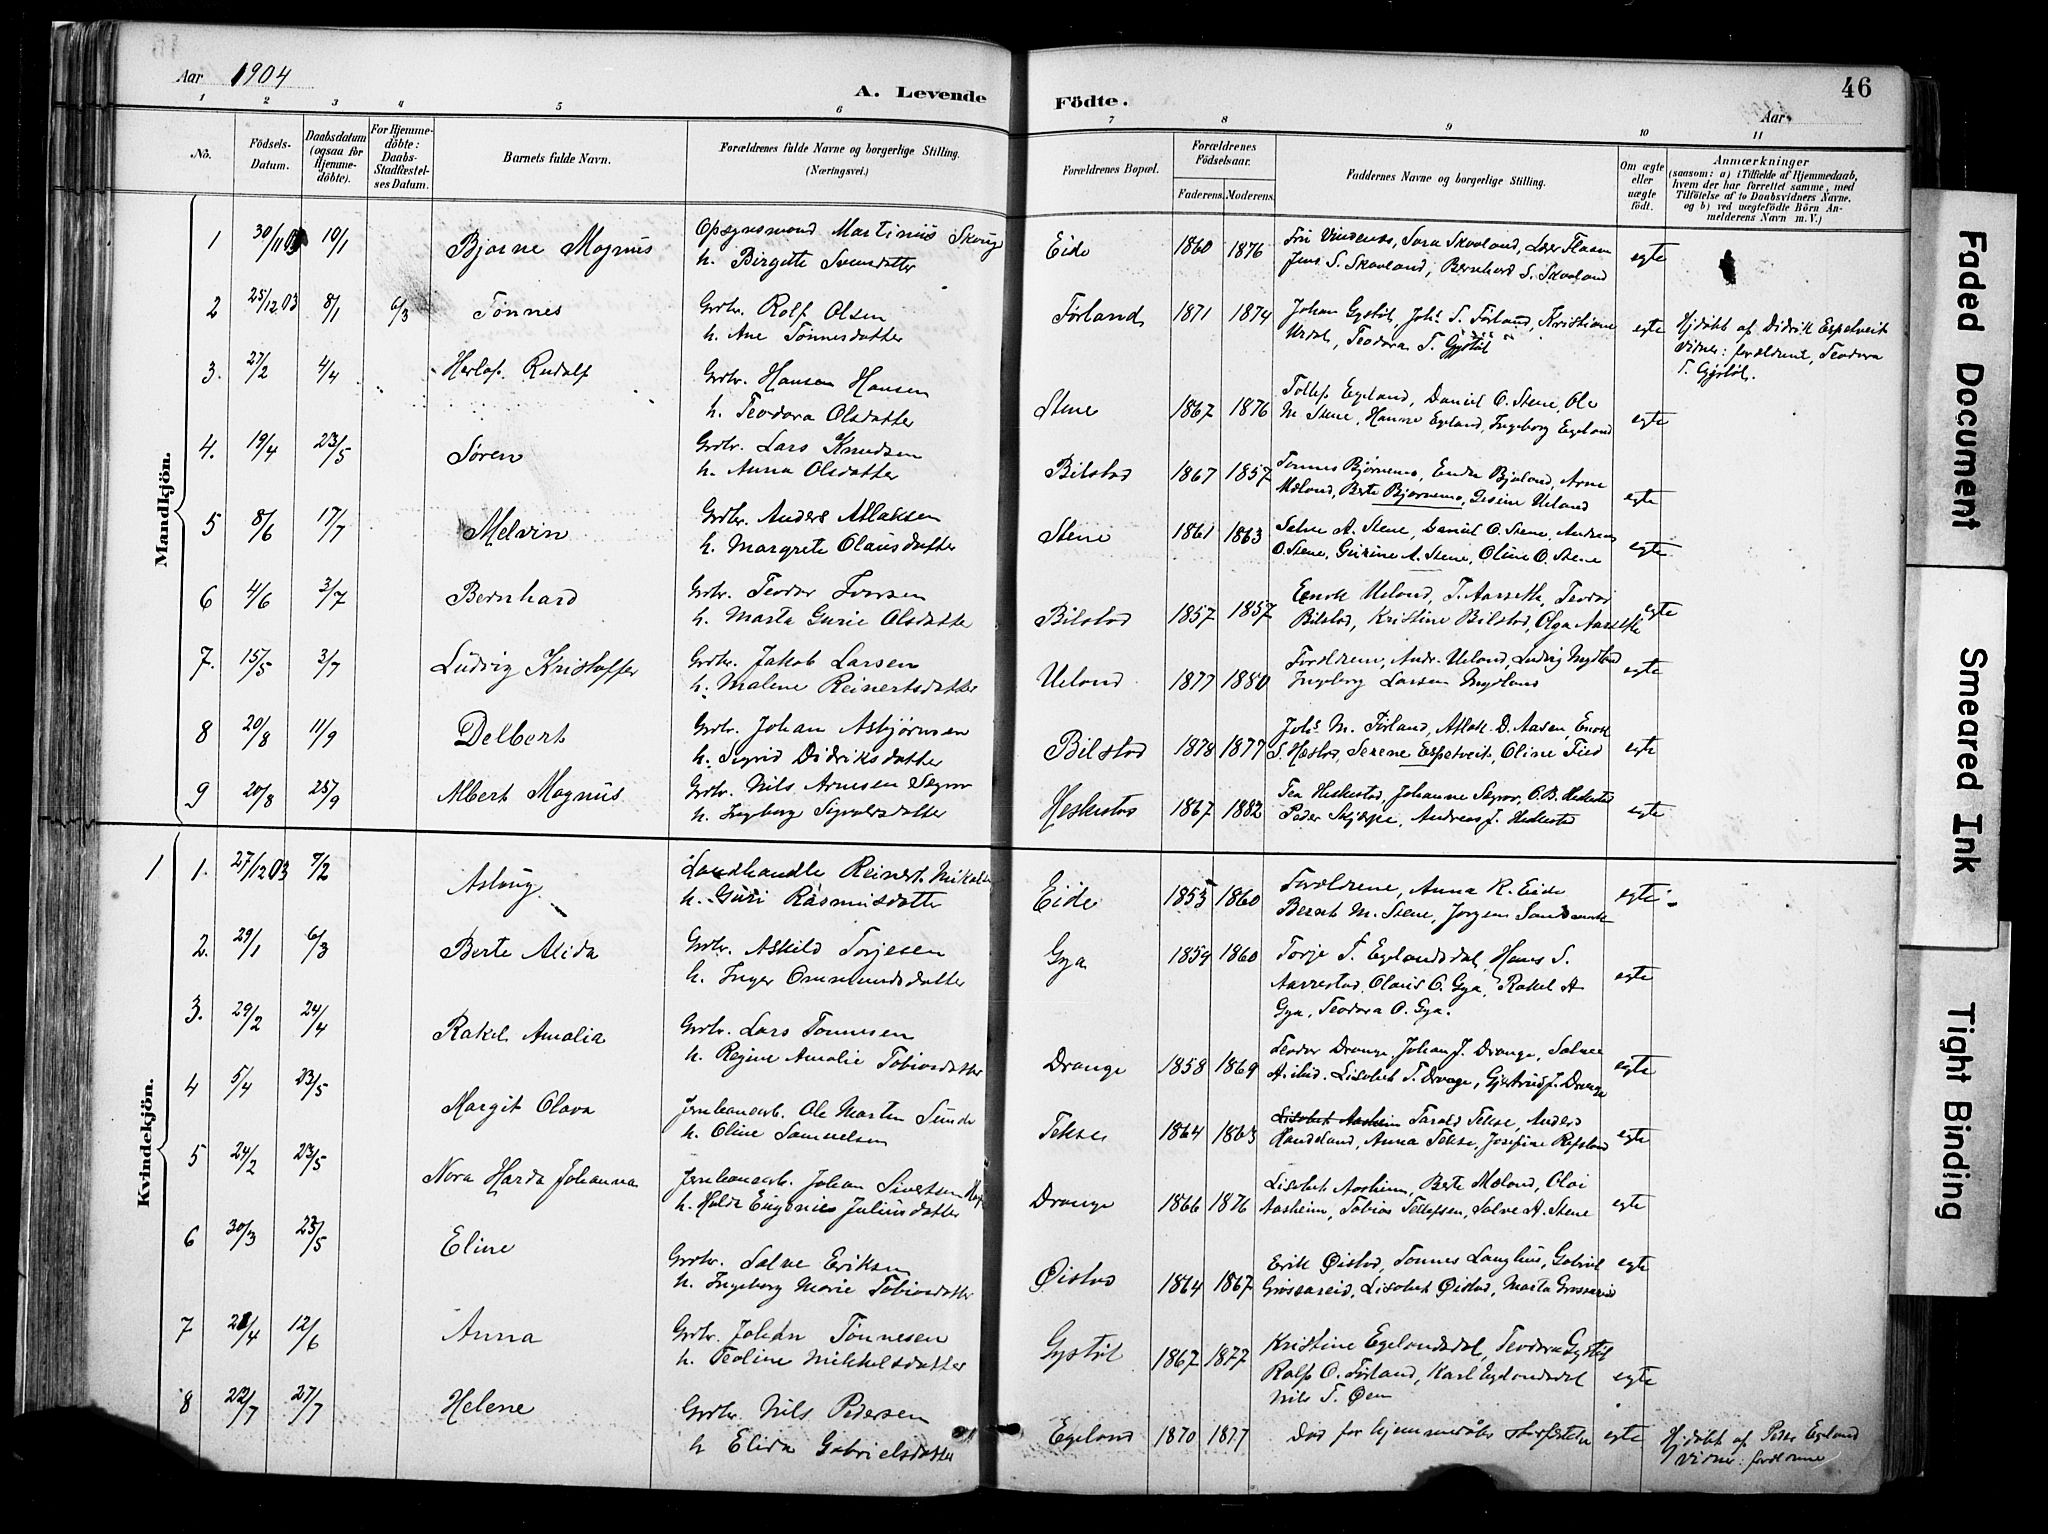 Aar 1904
A. Levende
Födte.
Aar
46
1 2 3 4 5 6 7 8 9 10 11
No.
Födsels-Datum.
Daabsdatum (ogsaa för Hjemme-döbte).
For Hjemme-döbte: Daabs-Stadfæstel-ses Datum.
Barnets fulde Navn.
Forældrenes fulde Navne og borgerlige Stilling. (Næringsvei.)
Forældrenes Bopæl.
Forældrenes Födselsaar.
Faderens. Moderens.
Faddernes Navne og borgerlige Stilling.
Om ægte eller uægte födt.
Anmærkninger
(saasom: a) i Tilfælde af Hjemmedaab, hvem der har forrettet samme, med Tilföielse af to Daabsvidners Navne, og b) ved uægtefödte Börn An-melderens Navn m. V.)
Mandkjön.
1 30/11 03 10/1 Bjarne Magnus Opsynsmand Martinius Skauge
h. Birgitte Svensdatter Eide 1860 1876
Jens S. Skavland, Bernhard S. Skavland egte
2 25/12 03 8/1 6/3 Tønnes Grdbr. Rolf Olsen
h. Ane Tønnesdatter Førland 1871 1874 Johan Gystøl, Johs S. Førland, Kristiane
Urdal, Teodora T. Gystøl egte Hjdøbt af Didrik Espetveit
Vidner: forældrene, Teodora
T. Gystøl.
3. 27/2 4/4 Herlof Rudolf Grdbr. Hansen Hansen
h. Teodora Olsdatter Stene 1867 1876 Tollef Egeland, Daniel O. Stene, Ole
M Stene, Hanne Egeland, Ingeborg Egeland egte
4. 19/4 23/5 Søren Grdbr. Lars Knudsen
h. Anna Olsdatter Bilstad 1867 1857 Tønnes Bjørnemo, Endre Bjuland, Arne
Mæland, Berte Bjørnemo, Gesine Ueland egte
5 8/6 17/7 Melvin Grdbr. Anders Atlaksen
h. Margrete Olausdatter Stene 1861 1863 Salve A. Stene, Daniel O. Stene, Andreas
O. Stene, Gurine A. Stene, Oline O. Stene egte
6 4/6 3/7 Bernhard Grdbr. Teodor Iversen
h. Marta Gurie Olsdatter Bilstad 1857 1857 Enok Ueland, T. Aarseth, Teodor
Bilstad, Kristine Bilstad, Olga Aarseth egte
7. 15/5 3/7 Ludvig Kristoffer Grdbr. Jakob Larsen
h. Malene Reinertsdatter Ueland 1877 1880 Forældrene, Andr. Ueland, Ludvig Mydland
Ingeborg Larsen Mydland egte
8 20/8 11/9 Delbert Grdbr. Johan Asbjørnsen
h. Sigrid Didriksdatter Bilstad 1878 1877 Johs M. Førland, Atlak D. Aasen, Enok
S. Hæstad, Serene Espetveit, Oline Fied egte
9 20/8 25/9 Albert Magnus Grdbr. Nils Arnesen Segror
h. Ingeborg Sigvaldsdatter Heskestad 1867 1882 Tea Heskestad, Johanne Segror, O. B. Heskestad
Peder Skjæpe, Andreas J. Heskestad egte
Kvindekjön.
1 1. 27/12 03 7/2 Aslaug Landhandler Reinert Mikals
h. Guri Rasmusdatter Eide 1855 1860 Forældrene, Anna R. Eide
Berat M. Stene, Jørgen Sandsmark egte
2. 29/1 6/3 Berte Alida Grdbr. Askild Torjesen
h. Inger Ommundsdatter Gya 1859 1860 Torje T. Egelandsdal, Hans S.
Aarrestad, Olaus O. Gya, Rakel A
Gya, Teodora O. Gya. egte
3. 29/2 24/4 Rakel Amalia Grdbr. Lars Tønnesen
h. Regine Amalie Tobiasdatter Drange 1858 1869 Teodor Drange, Johan J. Drange, Salve
A. ibid. Lisabet T. Drange, Gjertrud J. Drange egte
4 5/4 23/5 Margit Olava Jernbanearb. Ole Martin Sunde
h. Oline Samuelsen Tekse 1864 1863 Lisabet Aasheim Tarald Tekse, Anders
Handeland, Anna Tekse, Josefine Refsland egte
5 24/2 23/5 Nora Harda Johanna Jernbanearb. Johan Sivertsen
h. Hulda Eugenie Juliusdatter Drange 1866 1876 Lisabet Aasheim, Berte Mæland, Olai
Aasheim, Tobias Tollefsen, Salve A. Stene egte
6 30/3 23/5 Eline Grdbr. Salve Eriksen
h. Ingeborg Marie Tobiasdatter Øistad 1864 1867 Erik Øistad, Tønnes Langhus, Gabriel
Grøsareid, Lisabet Øistad, Marta Grøsareid egte
7 21/4 12/6 Anna Grdbr. Johan Tønnesen
h. Teoline Mikkelsdatter Gystøl 1867 1877 Kristine Egelandsdal, Teodora Gystøl
Ralf O. Førland, Karl Egelandsdal
Nils T. Øen egte
8 22/7 27/7 Helene Grdbr. Nils Pedersen
h Elida Gabrielsdatter Egeland 1870 1877 Død før hjemmedåbs stadfæstelse egte Hjdøbt af Peder Egeland
Vidner: forældrene
Faded Document
Smeared Ink
Tight Binding